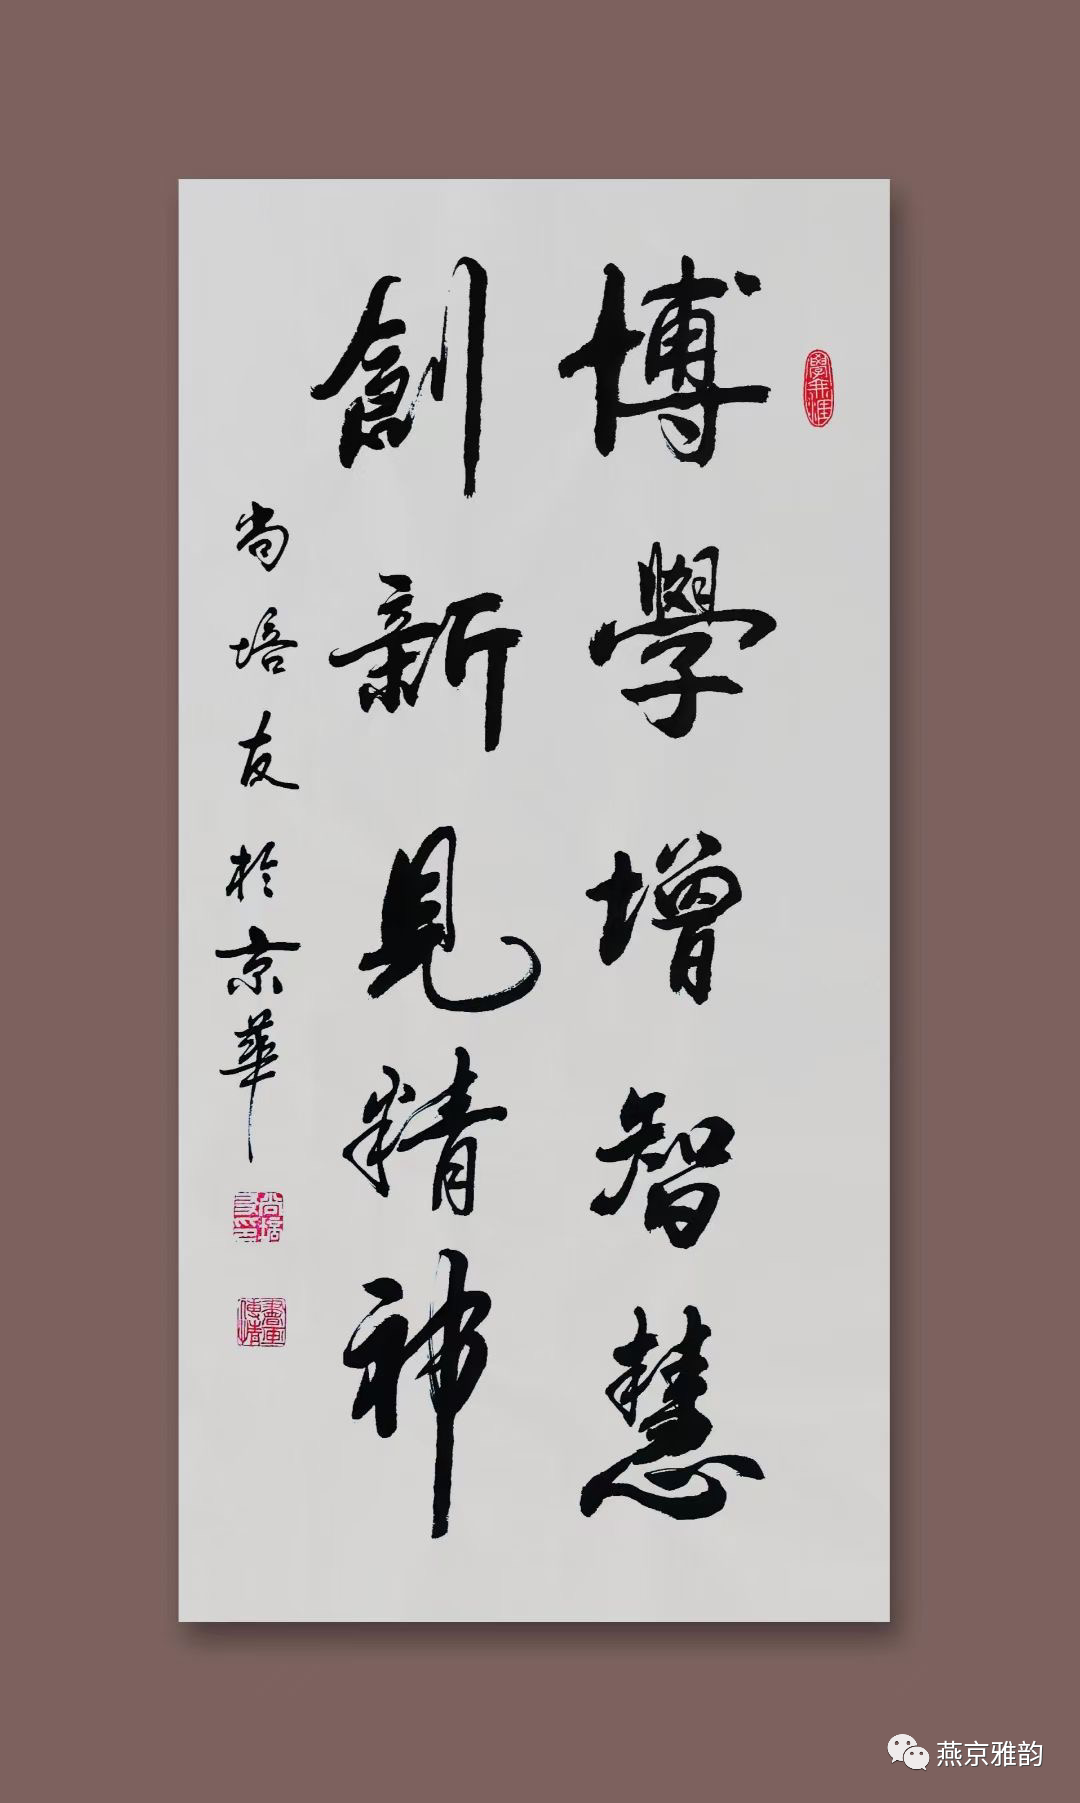 博學增智慧
創新見精神
尚培友於京華
學無涯
燕京雅韵